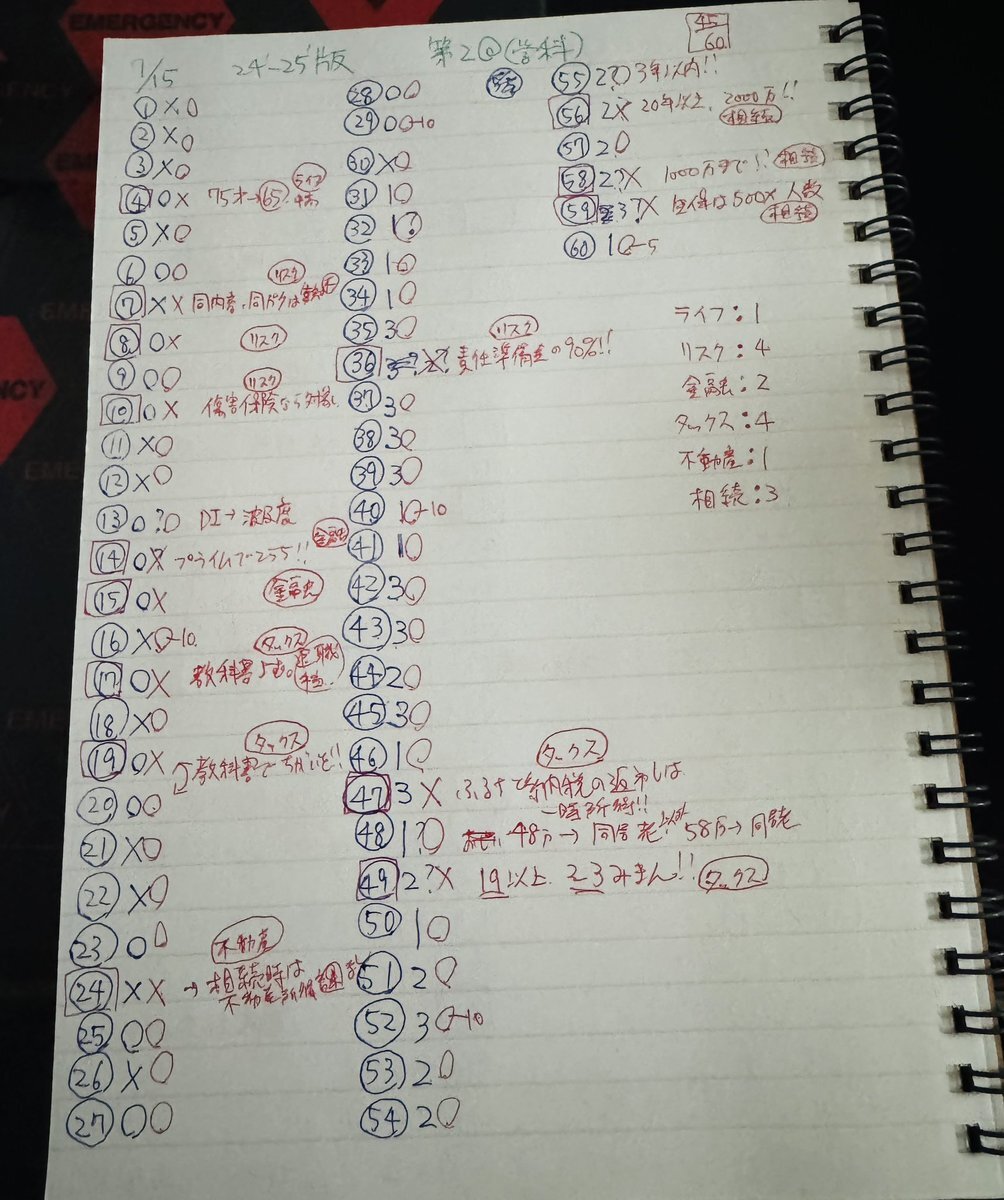 7/15 24'-25'版 第2回(学科) 45/60
① X○
② X○
③ X○
④ ○X 75才→65! ライフ
⑤ X○
⑥ ○○
⑦ XX 同内容、同 リスク
⑧ ○X リスク
⑨ ○○
⑩ ○X 傷害保険なら対象 リスク
⑪ X○
⑫ X○
⑬ ○?○ DI→波及度
⑭ ○X プライムで255!! 金融
⑮ ○X 金融
⑯ X○-10
⑰ ○X 教科書 退職 タックス
⑱ X○
⑲ ○X タックス
教科書で ちがいを!!
⑳ ○○
㉑ X○
㉒ X○
㉓ ○○
㉔ XX →相続時は 不動産
不動産
㉕ ○○
㉖ X○
㉗ ○○
㉘ ○○
㉙ ○○-10
㉚ X○
㉛ 1○
㉜ 1?
㉝ 1○
㉞ 1○
㉟ 3○
㊱ 責任準備金の90%!! リスク
㊲ 3○
㊳ 3○
㊴ 3○
㊵ 1○-10
㊶ 1○
㊷ 3○
㊸ 3○
㊹ 2○
㊺ 3○
㊻ 1○
㊼ 3X ふるさと納税の返礼しは タックス
一時所得!!
㊽ 1?○ 48万→同居老以外 58万→同居老
㊾ 2?X 19以上 23みまん!! タックス
㊿ 1○
51 2○
52 3○-10
53 2○
54 2○
55 2?○ 3年以内!!
56 2X 20年以上、2000万!!
相続
57 2○
58 2?X 1000万まで!! 相続
59 3?X は500X人数
相続
60 1○-5
ライフ:1
リスク:4
金融:2
タックス:4
不動産:1
相続:3